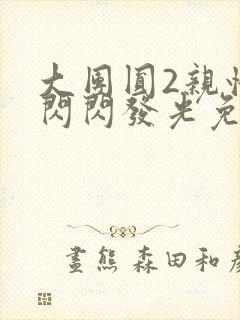 大團圓2親情
閃閃發光免
畫熊 森田和彥